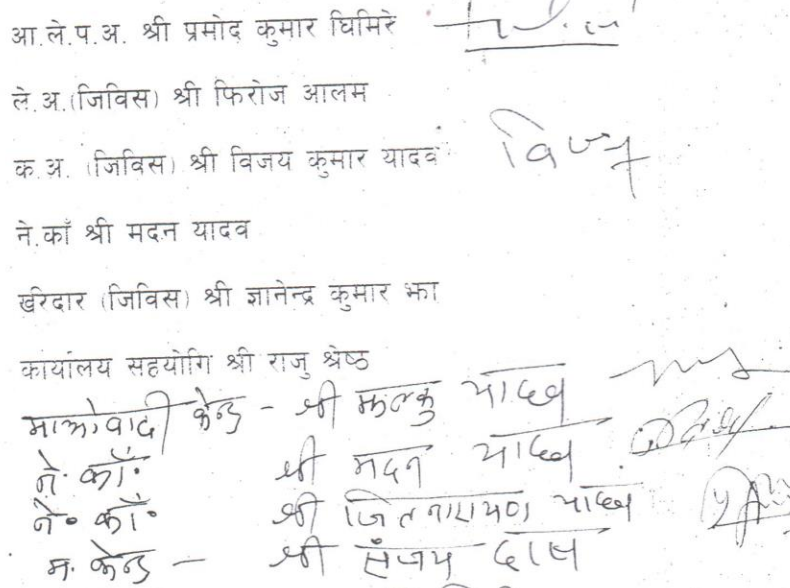 आ.ले.प.अ. श्री प्रमोद कुमार घिमिरे
ले.अ.(जिविस) श्री फिरोज आलम
क.अ. (जिविस) श्री विजय कुमार यादव विजय
ने.काँ श्री मदन यादव
खरिदार (जिविस) श्री ज्ञानेन्द्र कुमार झा
कार्यालय सहयोगि श्री राजु श्रेष्ठ
माओवादी केन्द्र - श्री झल्कु यादव
ने. काँ. श्री मदन यादव
ने. काँ. श्री जितनारायण यादव
म. केन्द्र - श्री संजय दास